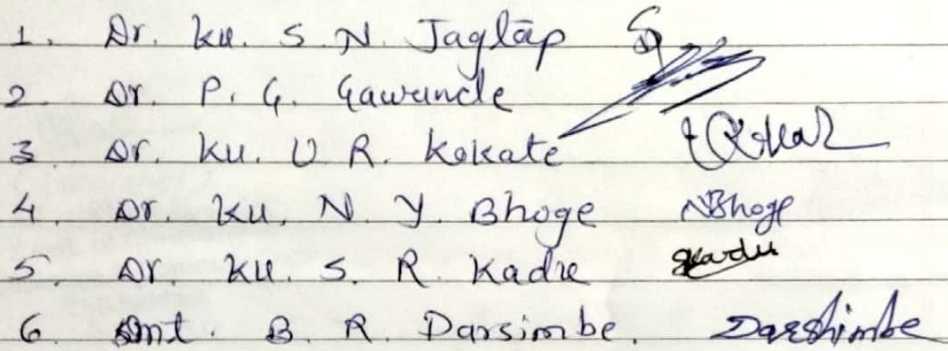 1. Dr. Ku. S. N. Jagtap
2 Dr. P. G. Gawande
3 Dr. Ku. U R. Kokate
4. Dr. Ku. N. Y. Bhoge NBhoge
5. Dr. Ku. S. R. Kadu Skadu
6 Smt. B. R. Darsimbe. Darshimbe